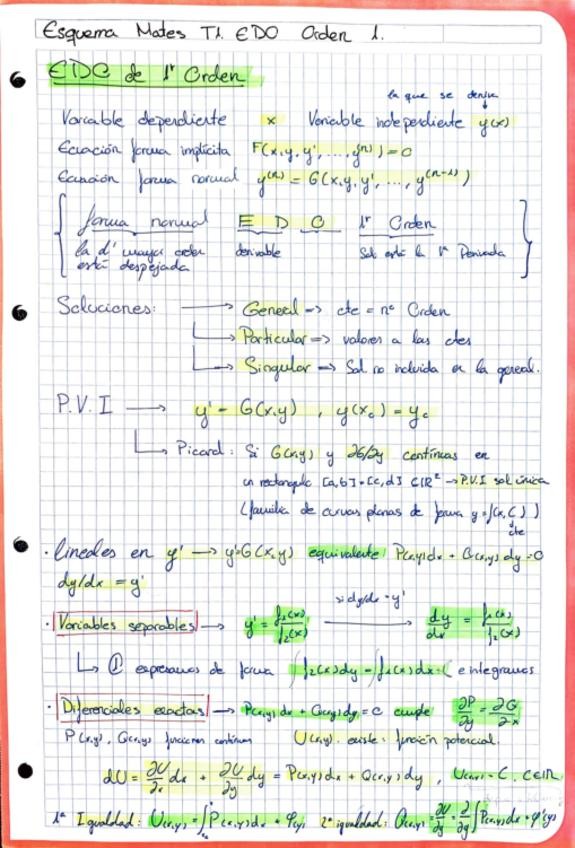 Esquema Mates T1. EDO Orden 1.
EDO de 1er Orden
la que se deriva
Variable dependiente x Variable independiente y(x)
Ecuación forma implícita F(x,y,y',...,y⁽ⁿ⁾)=0
Ecuación forma normal y⁽ⁿ⁾ = G(x,y,y',...,y⁽ⁿ⁻¹⁾)
forma normal E D O 1er Orden
la d' mayor orden derivable Sol está la 1ª Derivada
está despejada
Soluciones: → General => cte = nº Orden
→ Particular => valores a las ctes
→ Singular => Sol no incluida en la general.
P.V.I → y' = G(x,y) , y(x₀) = y₀
→ Picard: Si G(x,y) y ∂G/∂y contínuas en
un rectángulo [a,b]×[c,d] ∈ℝ² → P.V.I sol única
(familia de curvas planas de forma y=f(x,C))
cte
· lineales en y' → y'=G(x,y) equivalente P(x,y)dx + Q(x,y)dy=0
dy/dx = y'
· Variables separables → y' = f₁(x)/f₂(x) si dy/dx = y' → dy/dx = f₁(x)/f₂(x)
↳ ① expresamos de forma ∫f₂(x)dy = ∫f₁(x)dx+C e integramos
· Diferenciales exactas → P(x,y)dx + Q(x,y)dy=C cumple ∂P/∂y = ∂Q/∂x
P(x,y), Q(x,y) funciones contínuas U(x,y). existe función potencial.
dU = ∂U/∂x dx + ∂U/∂y dy = P(x,y)dx + Q(x,y)dy , U(x,y) = C. C∈ℝ
1ª Igualdad: U(x,y)=∫P(x,y)dx + φ(y) 2ª igualdad: Q(x,y) = ∂U/∂y = ∂/∂y ∫P(x,y)dx + φ'(y)